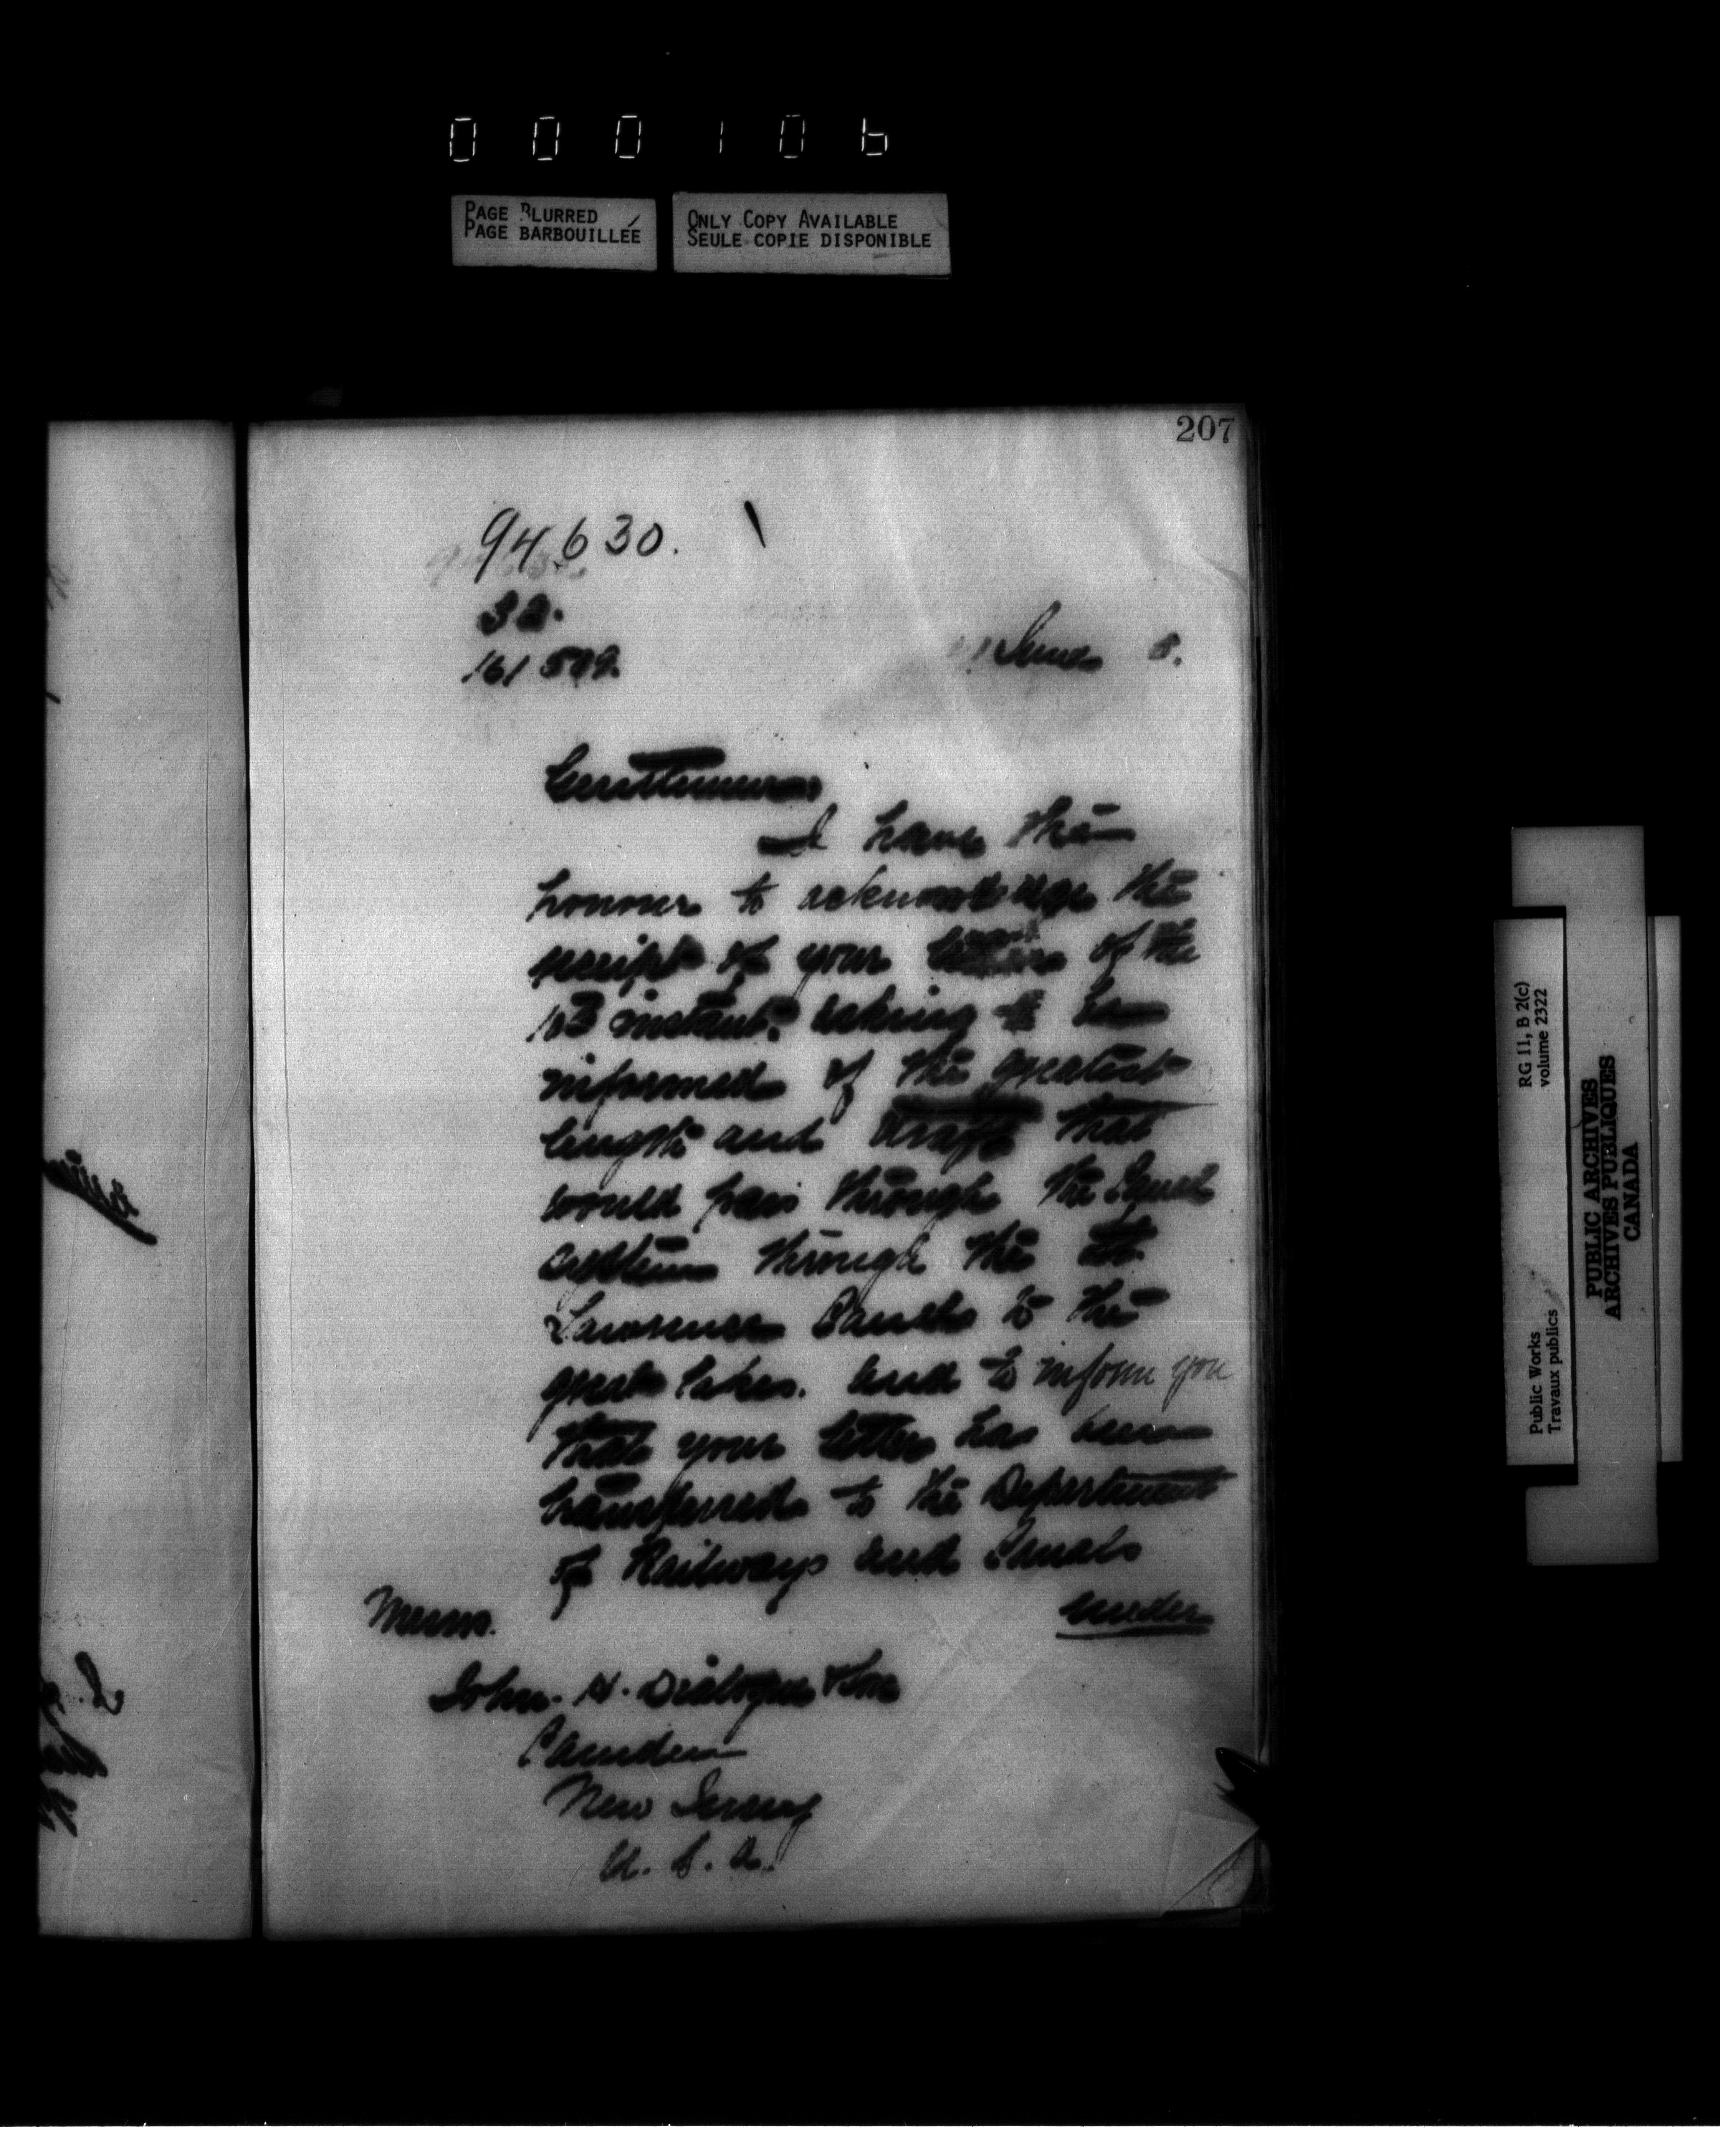 000106
PAGE BLURRED
PAGE BARBOUILLÉE
ONLY COPY AVAILABLE
SEULE COPIE DISPONIBLE
207
94630.
32.
161509.
June 8.
Gentlemen
I have the
honour to acknowledge the
receipt of your letter of the
instant, asking to be
informed of the greatest
length and draft that
would pass through the Canal
system through the St.
Lawrence Canals to the
great lakes. and to inform you
that your letter has been
transferred to the Department
of Railways and Canals
under
Messrs.
John. H. Dialogue & Son
Camden
New Jersey
U. S. A.
RG 11, B 2(c)
volume 2322
Public Works
Travaux publics
PUBLIC ARCHIVES
ARCHIVES PUBLIQUES
CANADA